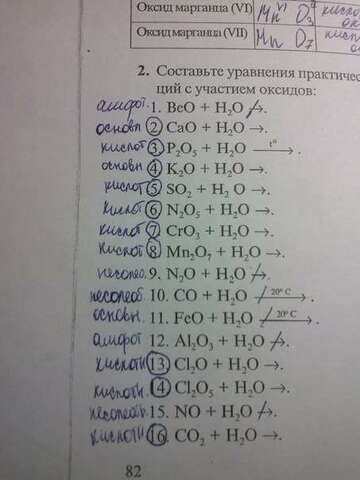 Оксид марганца (VI) Mn VI O3
Оксид марганца (VII) Mn O7
2. Составьте уравнения практичес
ций с участием оксидов:
амфот 1. BeO + H₂O ↛.
основн 2 CaO + H₂O →.
кислот 3. P₂O₅ + H₂O —t°→.
основн 4 K₂O + H₂O →.
кислот 5 SO₂ + H₂O →.
кислот 6 N₂O₅ + H₂O →.
кислот 7 CrO₃ + H₂O →.
кислот 8 Mn₂O₇ + H₂O →.
несолео. 9. N₂O + H₂O ↛.
несолеоб. 10. CO + H₂O —/20° C→.
основн. 11. FeO + H₂O —/20° C→.
амфот 12. Al₂O₃ + H₂O ↛.
кислотн 13. Cl₂O + H₂O →.
кислотн 14 Cl₂O₅ + H₂O →.
несолеоб. 15. NO + H₂O ↛.
кислотн 16. CO₂ + H₂O →.
82